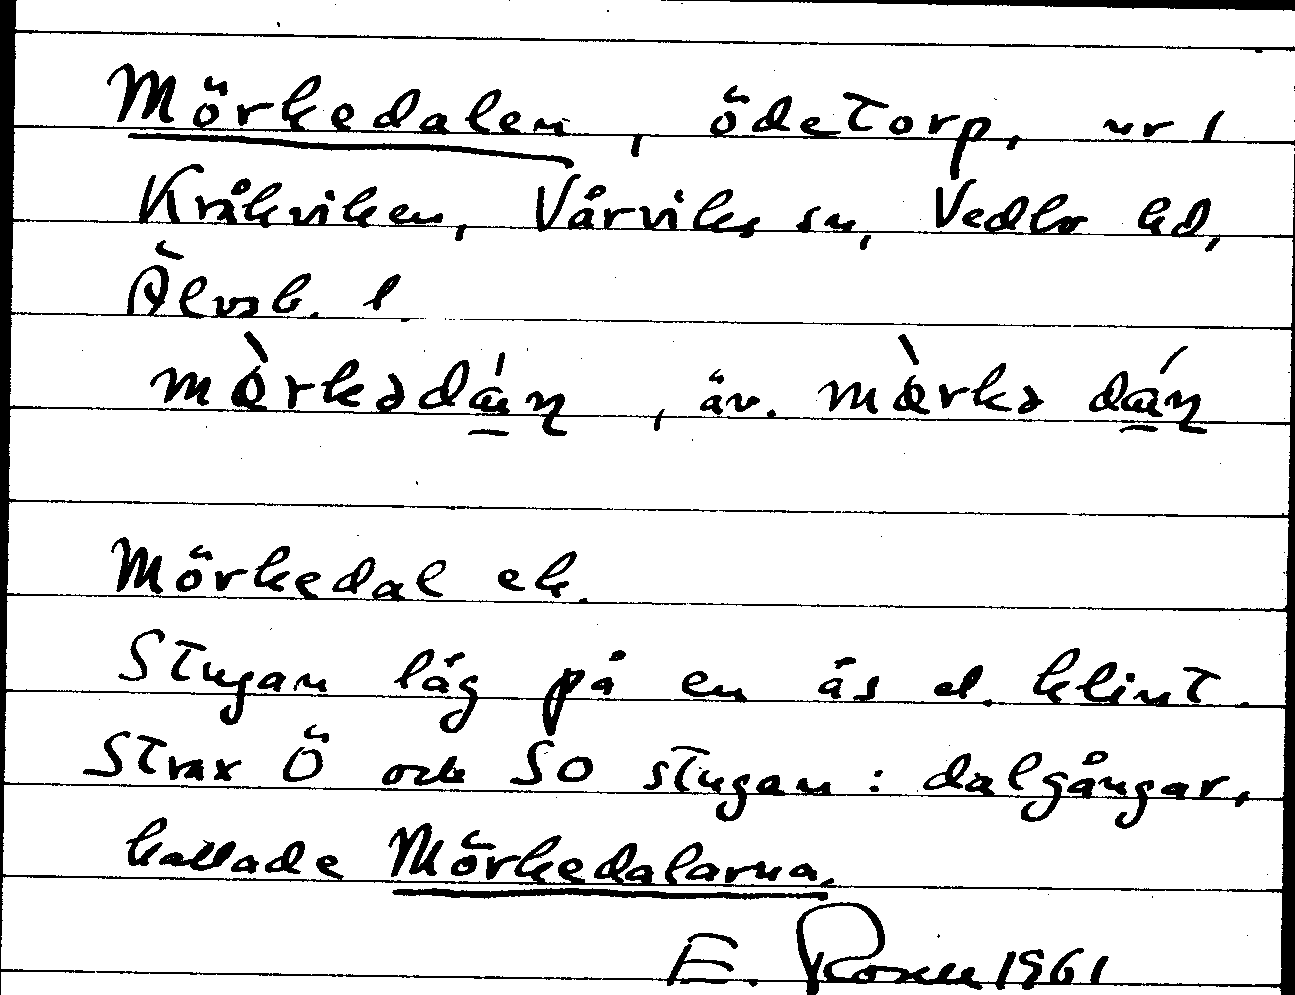 Mörkedalen, ödetorp, nr 1
Kråkviken, Vårviks sn, Vedbo hd,
Älvsb. l.
mö̀rkədáṇ, äv. mö̀rkə dáṇ
Mörkedal ek.
Stugan låg på en ås el. klint.
Strax Ö och SO stugan: dalgångar,
kallade Mörkedalarna.
E. Rosén 1961